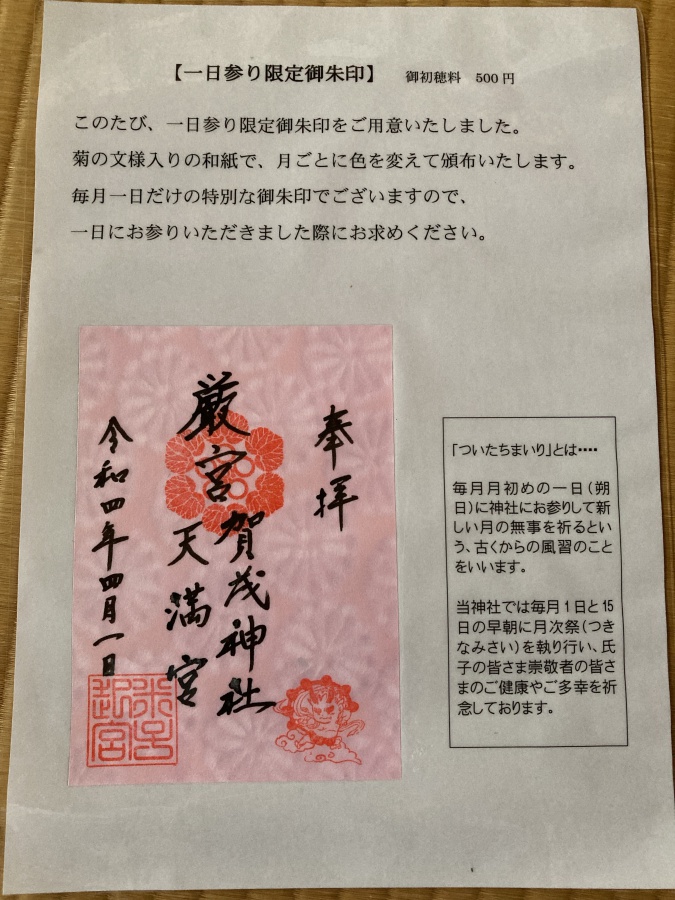 【一日参り限定御朱印】 御初穂料 500円
このたび、一日参り限定御朱印をご用意いたしました。
菊の文様入りの和紙で、月ごとに色を変えて頒布いたします。
毎月一日だけの特別な御朱印でございますので、
一日にお参りいただきました際にお求めください。
奉拝
厳宮
賀茂神社
天満宮
令和四年四月一日
「ついたちまいり」とは‥‥
毎月月初めの一日(朔
日)に神社にお参りして新
しい月の無事を祈るとい
う、古くからの風習のこと
をいいます。
当神社では毎月1日と15
日の早朝に月次祭(つき
なみさい)を執り行い、氏
子の皆さま崇敬者の皆さ
まのご健康やご多幸を祈
念しております。